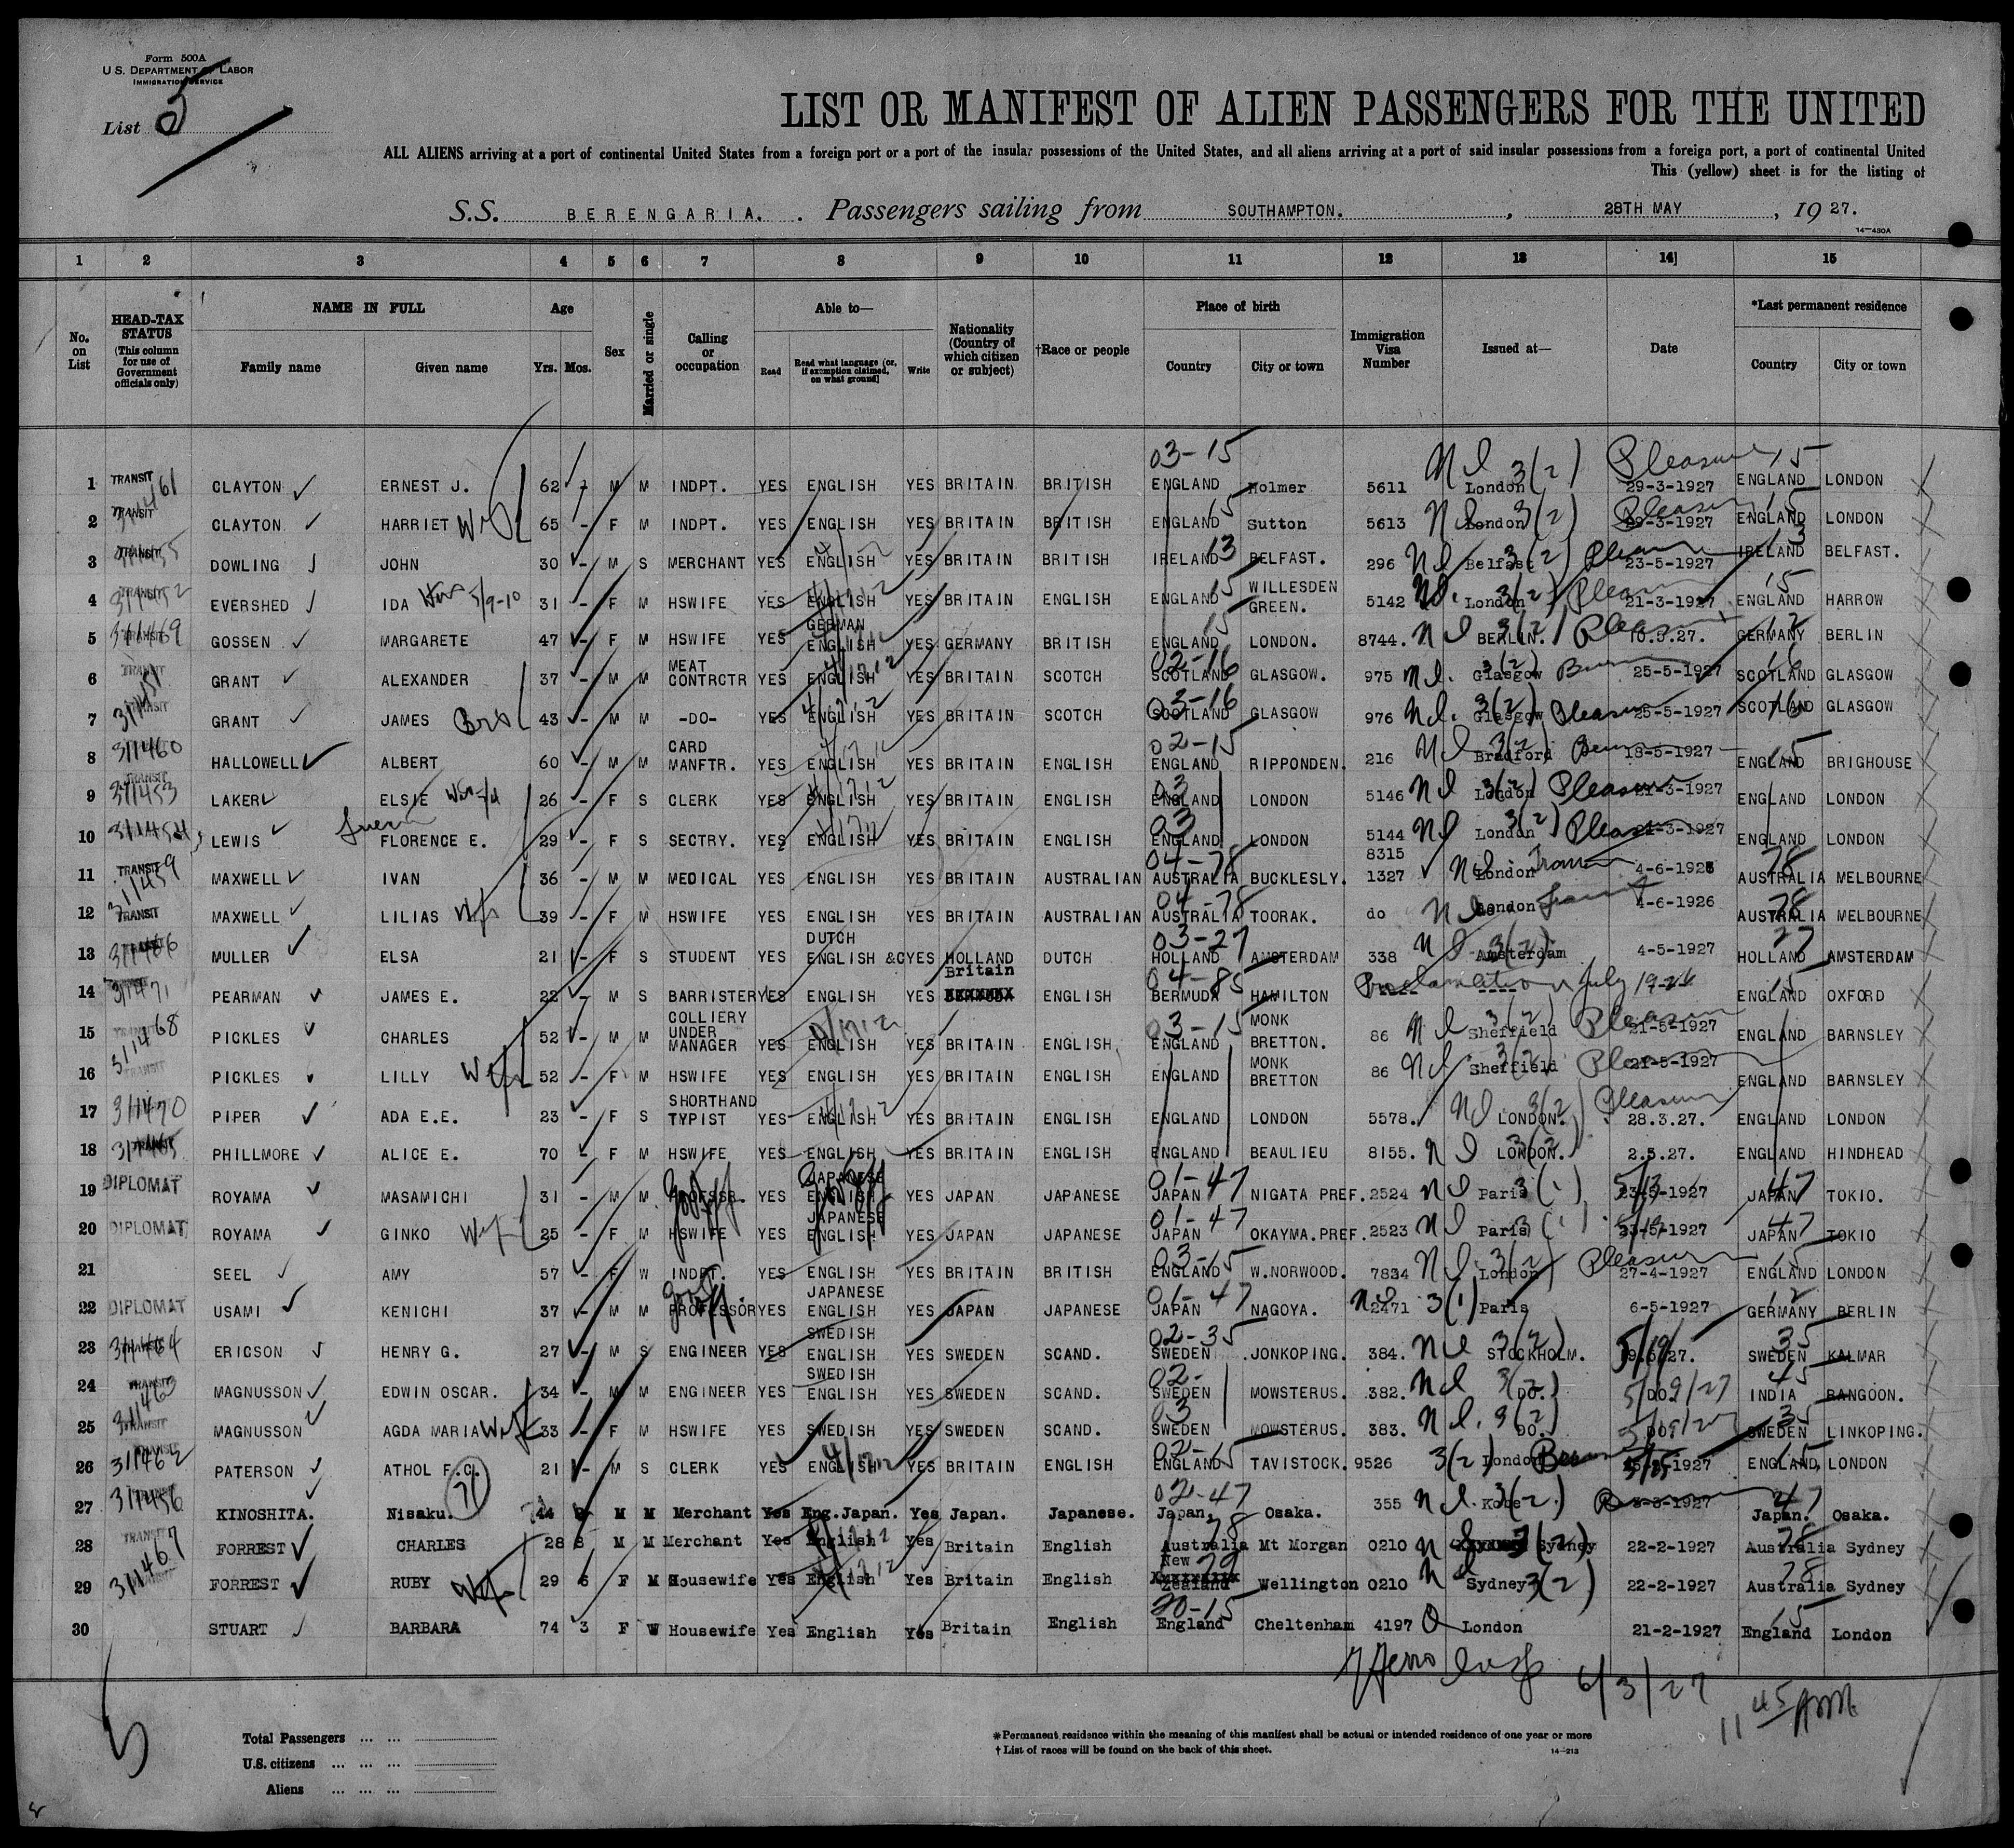 Form 500A
U.S. DEPARTMENT OF LABOR
IMMIGRATION SERVICE
List 5
LIST OR MANIFEST OF ALIEN PASSENGERS FOR THE UNITED
ALL ALIENS arriving at a port of continental United States from a foreign port or a port of the insular possessions of the United States, and all aliens arriving at a port of said insular possessions from a foreign port, a port of continental United
This (yellow) sheet is for the listing of
S.S. BERENGARIA. Passengers sailing from SOUTHAMPTON. , 28TH MAY , 1927.
14—430A
1 2 3 4 5 6 7 8 9 10 11 12 13 14] 15
No. on List
HEAD-TAX STATUS (This column for use of Government officials only)
NAME IN FULL Family name Given name
Age Yrs. Mos.
Sex
Married or single
Calling or occupation
Able to— Read Read what language [or, if exemption claimed, on what ground] Write
Nationality (Country of which citizen or subject)
†Race or people
Place of birth Country City or town
Immigration Visa Number
Issued at—
Date
*Last permanent residence Country City or town
03-15 Nl 3(2) Pleasure 15
1 TRANSIT CLAYTON ERNEST J. 62 - M M INDPT. YES ENGLISH YES BRITAIN BRITISH ENGLAND Holmer 5611 London 29-3-1927 ENGLAND LONDON
2 TRANSIT CLAYTON HARRIET Wife 65 - F M INDPT. YES ENGLISH YES BRITAIN BRITISH ENGLAND 15 Sutton 5613 Nl London 3(2) Pleasure 29-3-1927 ENGLAND 15 LONDON
3 TRANSIT DOWLING JOHN 30 - M S MERCHANT YES ENGLISH YES BRITAIN BRITISH IRELAND 13 BELFAST. 296 Nl Belfast 3(2) 23-5-1927 IRELAND 13 BELFAST.
4 TRANSIT 311452 EVERSHED IDA 31 - F M HSWIFE YES ENGLISH YES BRITAIN ENGLISH ENGLAND 15 WILLESDEN GREEN. 5142 Nl. London 3(2) 21-3-1927 ENGLAND 15 HARROW
5 TRANSIT 311469 GOSSEN MARGARETE 47 - F M HSWIFE YES GERMAN ENGLISH YES GERMANY BRITISH ENGLAND 15 LONDON. 8744. Nl BERLIN. 3(2) Pleasure 10.5.27. GERMANY 12 BERLIN
6 TRANSIT GRANT ALEXANDER 37 - M M MEAT CONTRCTR YES ENGLISH YES BRITAIN SCOTCH SCOTLAND 02-16 GLASGOW. 975 Nl. Glasgow 3(2) 25-5-1927 SCOTLAND 16 GLASGOW
7 TRANSIT GRANT JAMES Bro 43 - M M -DO- YES ENGLISH YES BRITAIN SCOTCH SCOTLAND 03-16 GLASGOW 976 Nl. Glasgow 3(2) Pleasure 25-5-1927 SCOTLAND 16 GLASGOW
8 311460 HALLOWELL ALBERT 60 - M M CARD MANFTR. YES ENGLISH YES BRITAIN ENGLISH ENGLAND 02-15 RIPPONDEN. 216 Nl Bradford 3(2) 18-5-1927 ENGLAND 15 BRIGHOUSE
9 TRANSIT 311453 LAKER ELSIE 26 - F S CLERK YES ENGLISH YES BRITAIN ENGLISH ENGLAND 03 LONDON 5146 Nl London 3(2) Pleasure 21-3-1927 ENGLAND LONDON
10 311454 LEWIS FLORENCE E. 29 - F S SECTRY. YES ENGLISH YES BRITAIN ENGLISH ENGLAND 03 LONDON 5144 Nl London 3(2) Pleasure 21-3-1927 ENGLAND LONDON
11 TRANSIT 311459 MAXWELL IVAN 36 - M M MEDICAL YES ENGLISH YES BRITAIN AUSTRALIAN AUSTRALIA 04-78 BUCKLESLY. 8315 1327 London 4-6-1926 AUSTRALIA 78 MELBOURNE
12 TRANSIT MAXWELL LILIAS Wife 39 - F M HSWIFE YES ENGLISH YES BRITAIN AUSTRALIAN AUSTRALIA 04-78 TOORAK. do London 4-6-1926 AUSTRALIA 78 MELBOURNE
13 311466 MULLER ELSA 21 - F S STUDENT YES DUTCH ENGLISH &C YES HOLLAND DUTCH HOLLAND 03-27 AMSTERDAM 338 Nl Amsterdam 3(2) 4-5-1927 HOLLAND 27 AMSTERDAM
14 311471 PEARMAN JAMES E. 22 - M S BARRISTER YES ENGLISH YES Britain ENGLISH BERMUDA 04-85 HAMILTON Proclamation July 1926 ENGLAND 15 OXFORD
15 311468 PICKLES CHARLES 52 - M M COLLIERY UNDER MANAGER YES ENGLISH YES BRITAIN ENGLISH ENGLAND 03-15 MONK BRETTON. 86 Nl Sheffield 3(2) Pleasure 21-5-1927 ENGLAND BARNSLEY
16 TRANSIT PICKLES LILLY Wife 52 - F M HSWIFE YES ENGLISH YES BRITAIN ENGLISH ENGLAND MONK BRETTON 86 Nl Sheffield 3(2) Pleasure 21-5-1927 ENGLAND BARNSLEY
17 311470 PIPER ADA E.E. 23 - F S SHORTHAND TYPIST YES ENGLISH YES BRITAIN ENGLISH ENGLAND LONDON 5578. Nl LONDON. 3(2) Pleasure 28.3.27. ENGLAND LONDON
18 311465 PHILLMORE ALICE E. 70 - F M HSWIFE YES ENGLISH YES BRITAIN ENGLISH ENGLAND BEAULIEU 8155. Nl LONDON. 3(2) 2.5.27. ENGLAND HINDHEAD
19 DIPLOMAT ROYAMA MASAMICHI 31 - M M PROFSSR. YES JAPANESE ENGLISH YES JAPAN JAPANESE JAPAN 01-47 NIGATA PREF. 2524 Nl Paris 3(1) 23-5-1927 JAPAN 47 TOKIO.
20 DIPLOMAT ROYAMA GINKO Wife 25 - F M HSWIFE YES JAPANESE ENGLISH YES JAPAN JAPANESE JAPAN 01-47 OKAYMA.PREF. 2523 Nl Paris 3(1) 23-5-1927 JAPAN 47 TOKIO
21 SEEL AMY 57 - F W INDPT. YES ENGLISH YES BRITAIN BRITISH ENGLAND 03-15 W.NORWOOD. 7834 Nl London 3(2) Pleasure 27-4-1927 ENGLAND 15 LONDON
22 DIPLOMAT USAMI KENICHI 37 - M M PROFESSOR YES JAPANESE ENGLISH YES JAPAN JAPANESE JAPAN 01-47 NAGOYA. 2471 3(1) Paris 6-5-1927 GERMANY 12 BERLIN
23 311464 ERICSON HENRY G. 27 - M S ENGINEER YES SWEDISH ENGLISH YES SWEDEN SCAND. SWEDEN 02-35 JONKOPING. 384. Nl STOCKHOLM. 3(2) SWEDEN 35 KALMAR
24 TRANSIT 311463 MAGNUSSON EDWIN OSCAR. 34 - M M ENGINEER YES SWEDISH ENGLISH YES SWEDEN SCAND. SWEDEN 02- MOWSTERUS. 382. Nl DO. 3(2) DO INDIA 45 RANGOON.
25 TRANSIT MAGNUSSON AGDA MARIA Wife 33 - F M HSWIFE YES SWEDISH YES SWEDEN SCAND. SWEDEN 03 MOWSTERUS. 383. Nl. DO. 3(2) DO SWEDEN 35 LINKOPING.
26 TRANSIT 311462 PATERSON ATHOL F.C. 21 - M S CLERK YES ENGLISH YES BRITAIN ENGLISH ENGLAND 02-15 TAVISTOCK. 9526 3(2) London ENGLAND 15 LONDON
27 311456 KINOSHITA. Nisaku. 44 M M Merchant Yes Eng.Japan. Yes Japan. Japanese. Japan. 02-47 Osaka. 355 Nl. Kobe 3(2) 3-3-1927 Japan. 47 Osaka.
28 TRANSIT FORREST CHARLES 28 8 M M Merchant Yes English Yes Britain English Australia 78 Mt Morgan 0210 Nl Sydney 3(2) 22-2-1927 Australia 78 Sydney
29 311467 TRANSIT FORREST RUBY Wife 29 6 F M Housewife Yes English Yes Britain English New Zealand 79 Wellington 0210 Nl Sydney 3(2) 22-2-1927 Australia 78 Sydney
30 STUART BARBARA 74 3 F W Housewife Yes English Yes Britain English England 20-15 Cheltenham 4197 London 21-2-1927 England 15 London
6/3/27 11 45 AM
Total Passengers ... ...
U.S. citizens ... ... ...
Aliens ... ... ...
*Permanent residence within the meaning of this manifest shall be actual or intended residence of one year or more
† List of races will be found on the back of this sheet.
14—213